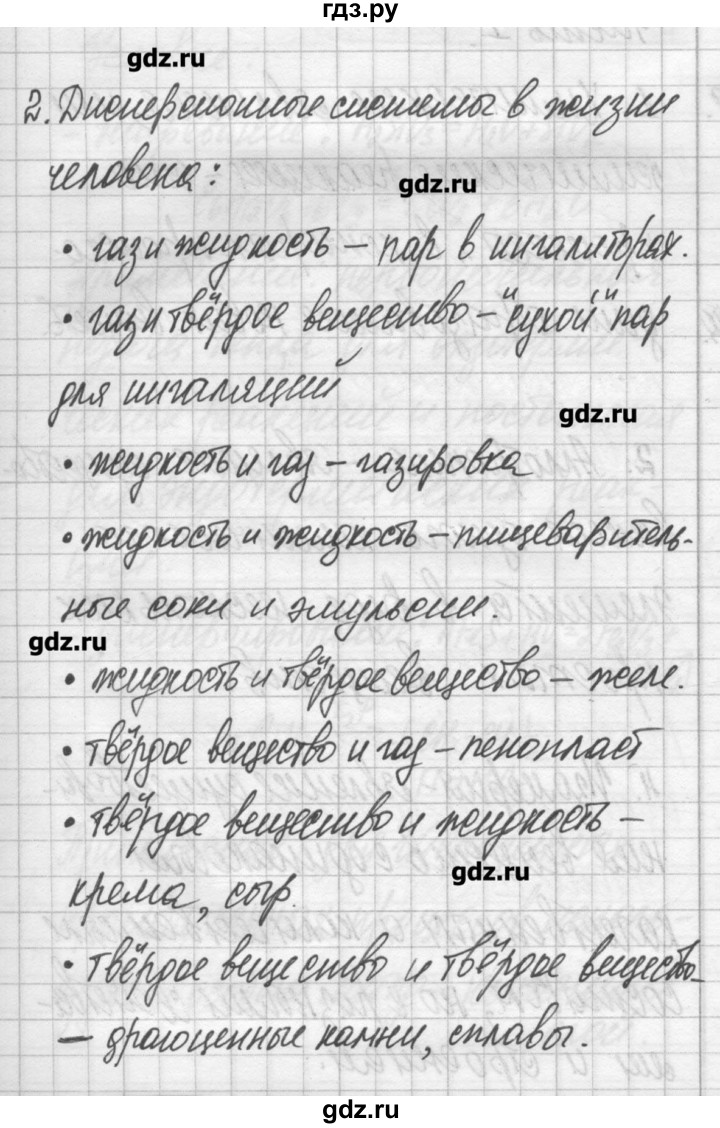 гдз.ру
gdz.ru
2. Дисперсионные системы в жизни
человека:
gdz.ru
• газ и жидкость – пар в ингаляторах.
• газ и твёрдое вещество – "сухой" пар
для ингаляций
gdz.ru
• жидкость и газ – газировка
• жидкость и жидкость – пищеваритель-
ные соки и эмульсии.
gdz.ru
• жидкость и твёрдое вещество – желе.
• твёрдое вещество и газ – пенопласт
• твёрдое вещество и жидкость –
gdz.ru
крема, сыр.
• твёрдое вещество и твёрдое вещество-
– драгоценные камни, сплавы.
gdz.ru